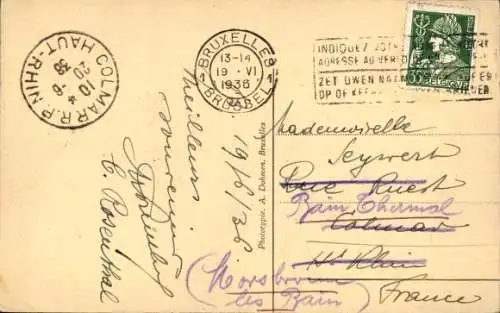 COLMAR R.P.
10 4
20 - 6
36
HAUT-RHIN
BRUXELLES
1 1
13-14
19 · VI
1936
BRUSSEL
INDIQUEZ VOTRE
ADRESSE AU VERSO
ZET UWEN NAAM
OP DE KEERZIJDE
BELGIQUE
35
Meilleurs
souvenirs
C. Rosenthal
19/6/36
Phototypie. A. Dohmen, Bruxelles
Mademoiselle
Seywert
Rue Ruest
Bain Thermal
Colmar
Ht Rhin
(Morsbronn
les Bain)
France